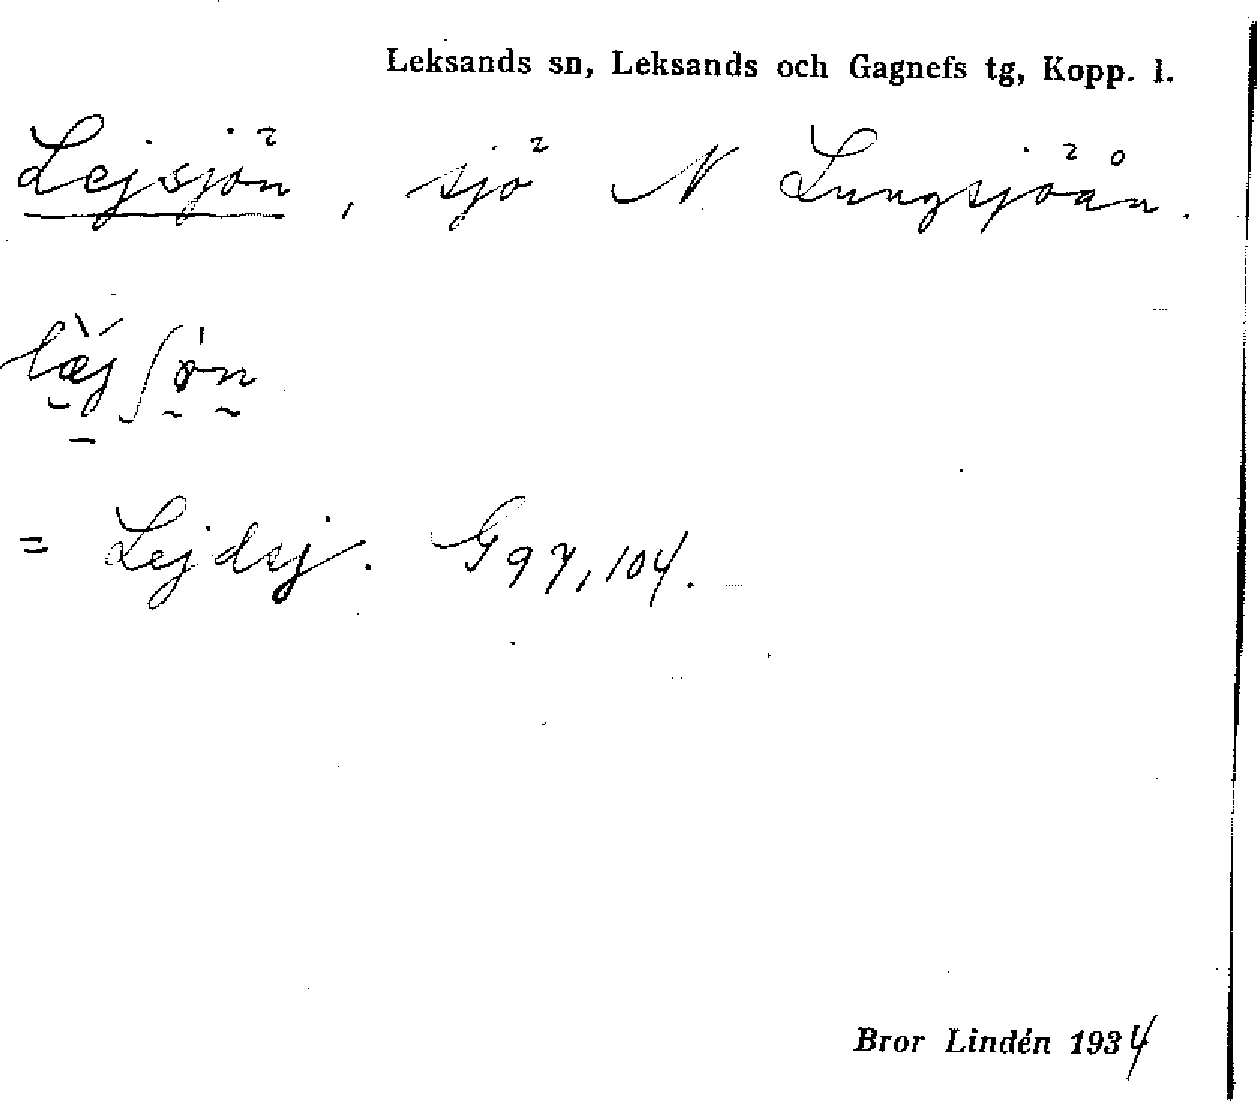 Leksands sn, Leksands och Gagnefs tg, Kopp. l.
Lejsjön, sjö N Lungsjöån.
læjʃøn
= Lejdsj. G 97, 104.
Bror Lindén 1934